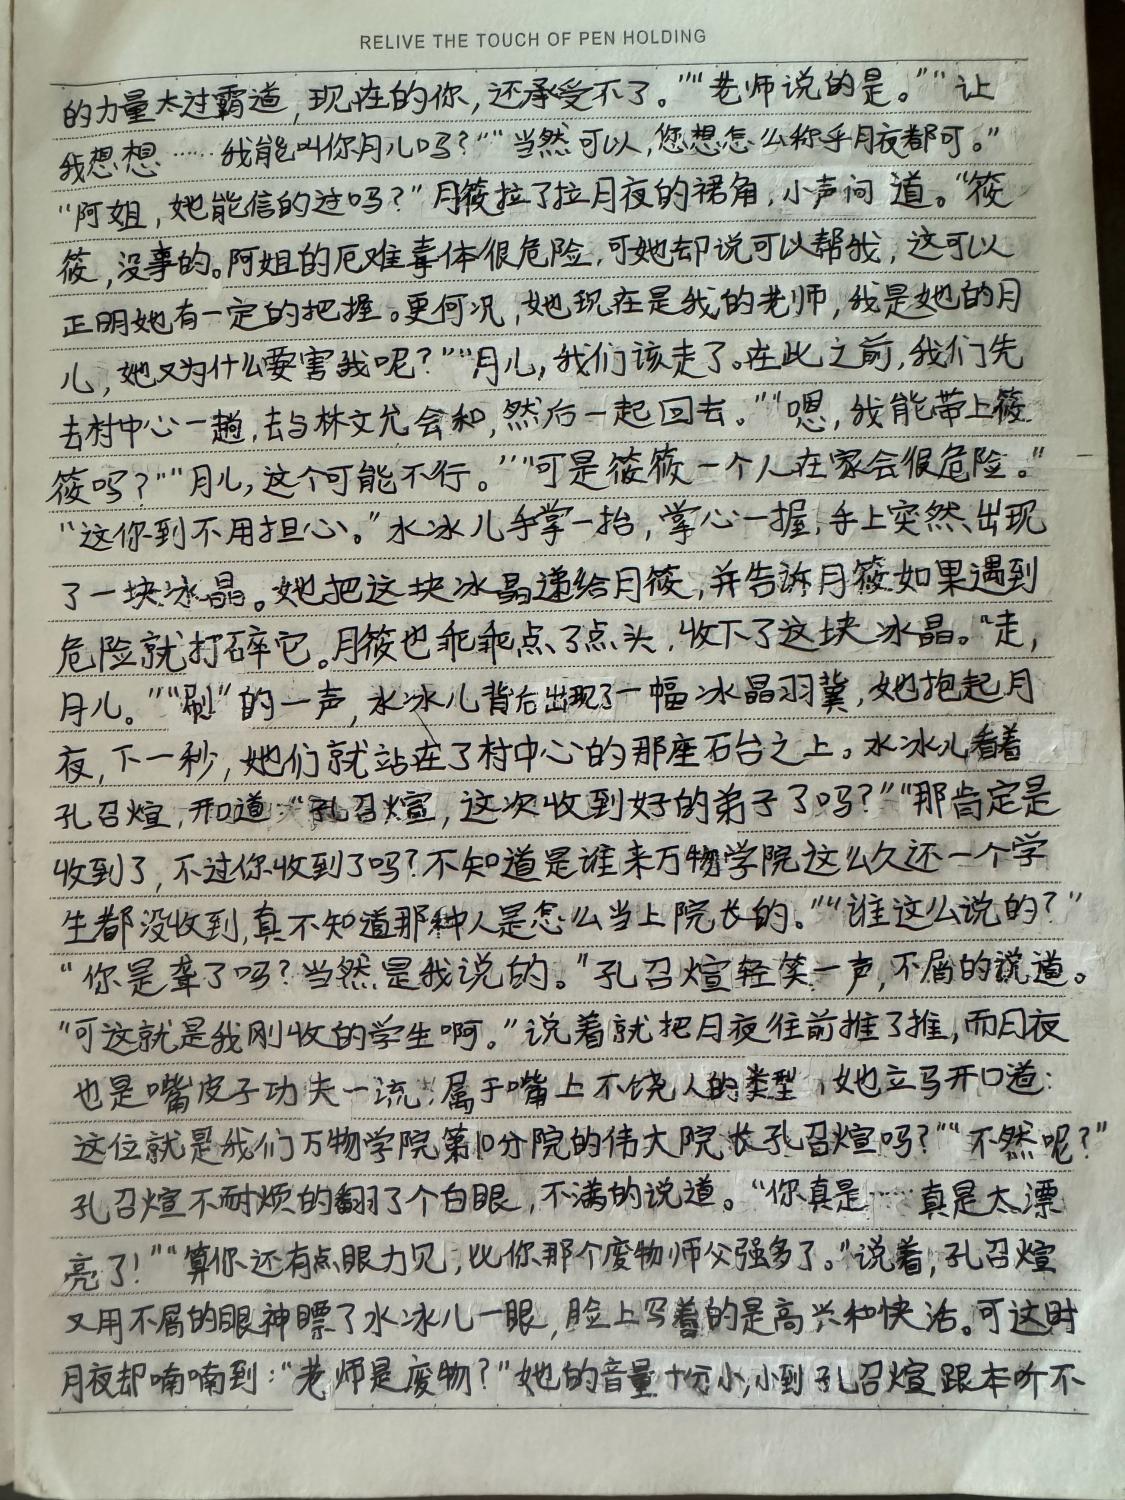 RELIVE THE TOUCH OF PEN HOLDING
的力量太过霸道，现在的你，还承受不了。”“老师说的是。”“让
我想想……我能叫你月儿吗？”“当然可以，您想怎么称乎月夜都可。”
“阿姐，她能信的过吗？”月筱拉了拉月夜的裙角，小声问道。“筱
筱，没事的。阿姐的厄难毒体很危险，可她却说可以帮我，这可以
正明她有一定的把握。更何况，她现在是我的老师，我是她的月
儿，她又为什么要害我呢？”“月儿，我们该走了。在此之前，我们先
去村中心一趟，去与林文允会和，然后一起回去。”“嗯，我能带上筱
筱吗？”“月儿，这个可能不行。”“可是筱筱一个人在家会很危险。”
“这你到不用担心。”水冰儿手掌一抬，掌心一握，手上突然出现
了一块冰晶。她把这块冰晶递给月筱，并告诉月筱如果遇到
危险就打碎它。月筱也乖乖点了点头，收下了这块冰晶。“走，
月儿。”“刷”的一声，水冰儿背后出现了一幅冰晶羽冀，她抱起月
夜，下一秒，她们就站在了村中心的那座石台之上。水冰儿看着
孔召煊，开口道：“孔召煊，这次收到好的弟子了吗？”“那肯定是
收到了，不过你收到了吗？不知道是谁来万物学院这么久还一个学
生都没收到，真不知道那种人是怎么当上院长的。”“谁这么说的？”
“你是聋了吗？当然是我说的。”孔召煊轻笑一声，不屑的说道。
“可这就是我刚收的学生啊。”说着就把月夜往前推了推，而月夜
也是嘴皮子功夫一流，属于嘴上不饶人的类型，她立马开口道：
这位就是我们万物学院第10分院的伟大院长孔召煊吗？”“不然呢？”
孔召煊不耐烦的翻了个白眼，不满的说道。“你真是……真是太漂
亮了！”“算你还有点眼力见，比你那个废物师父强多了。”说着，孔召煊
又用不屑的眼神瞟了水冰儿一眼，脸上写着的是高兴和快活。可这时
月夜却喃喃到：“老师是废物？”她的音量十分小，小到孔召煊跟本听不